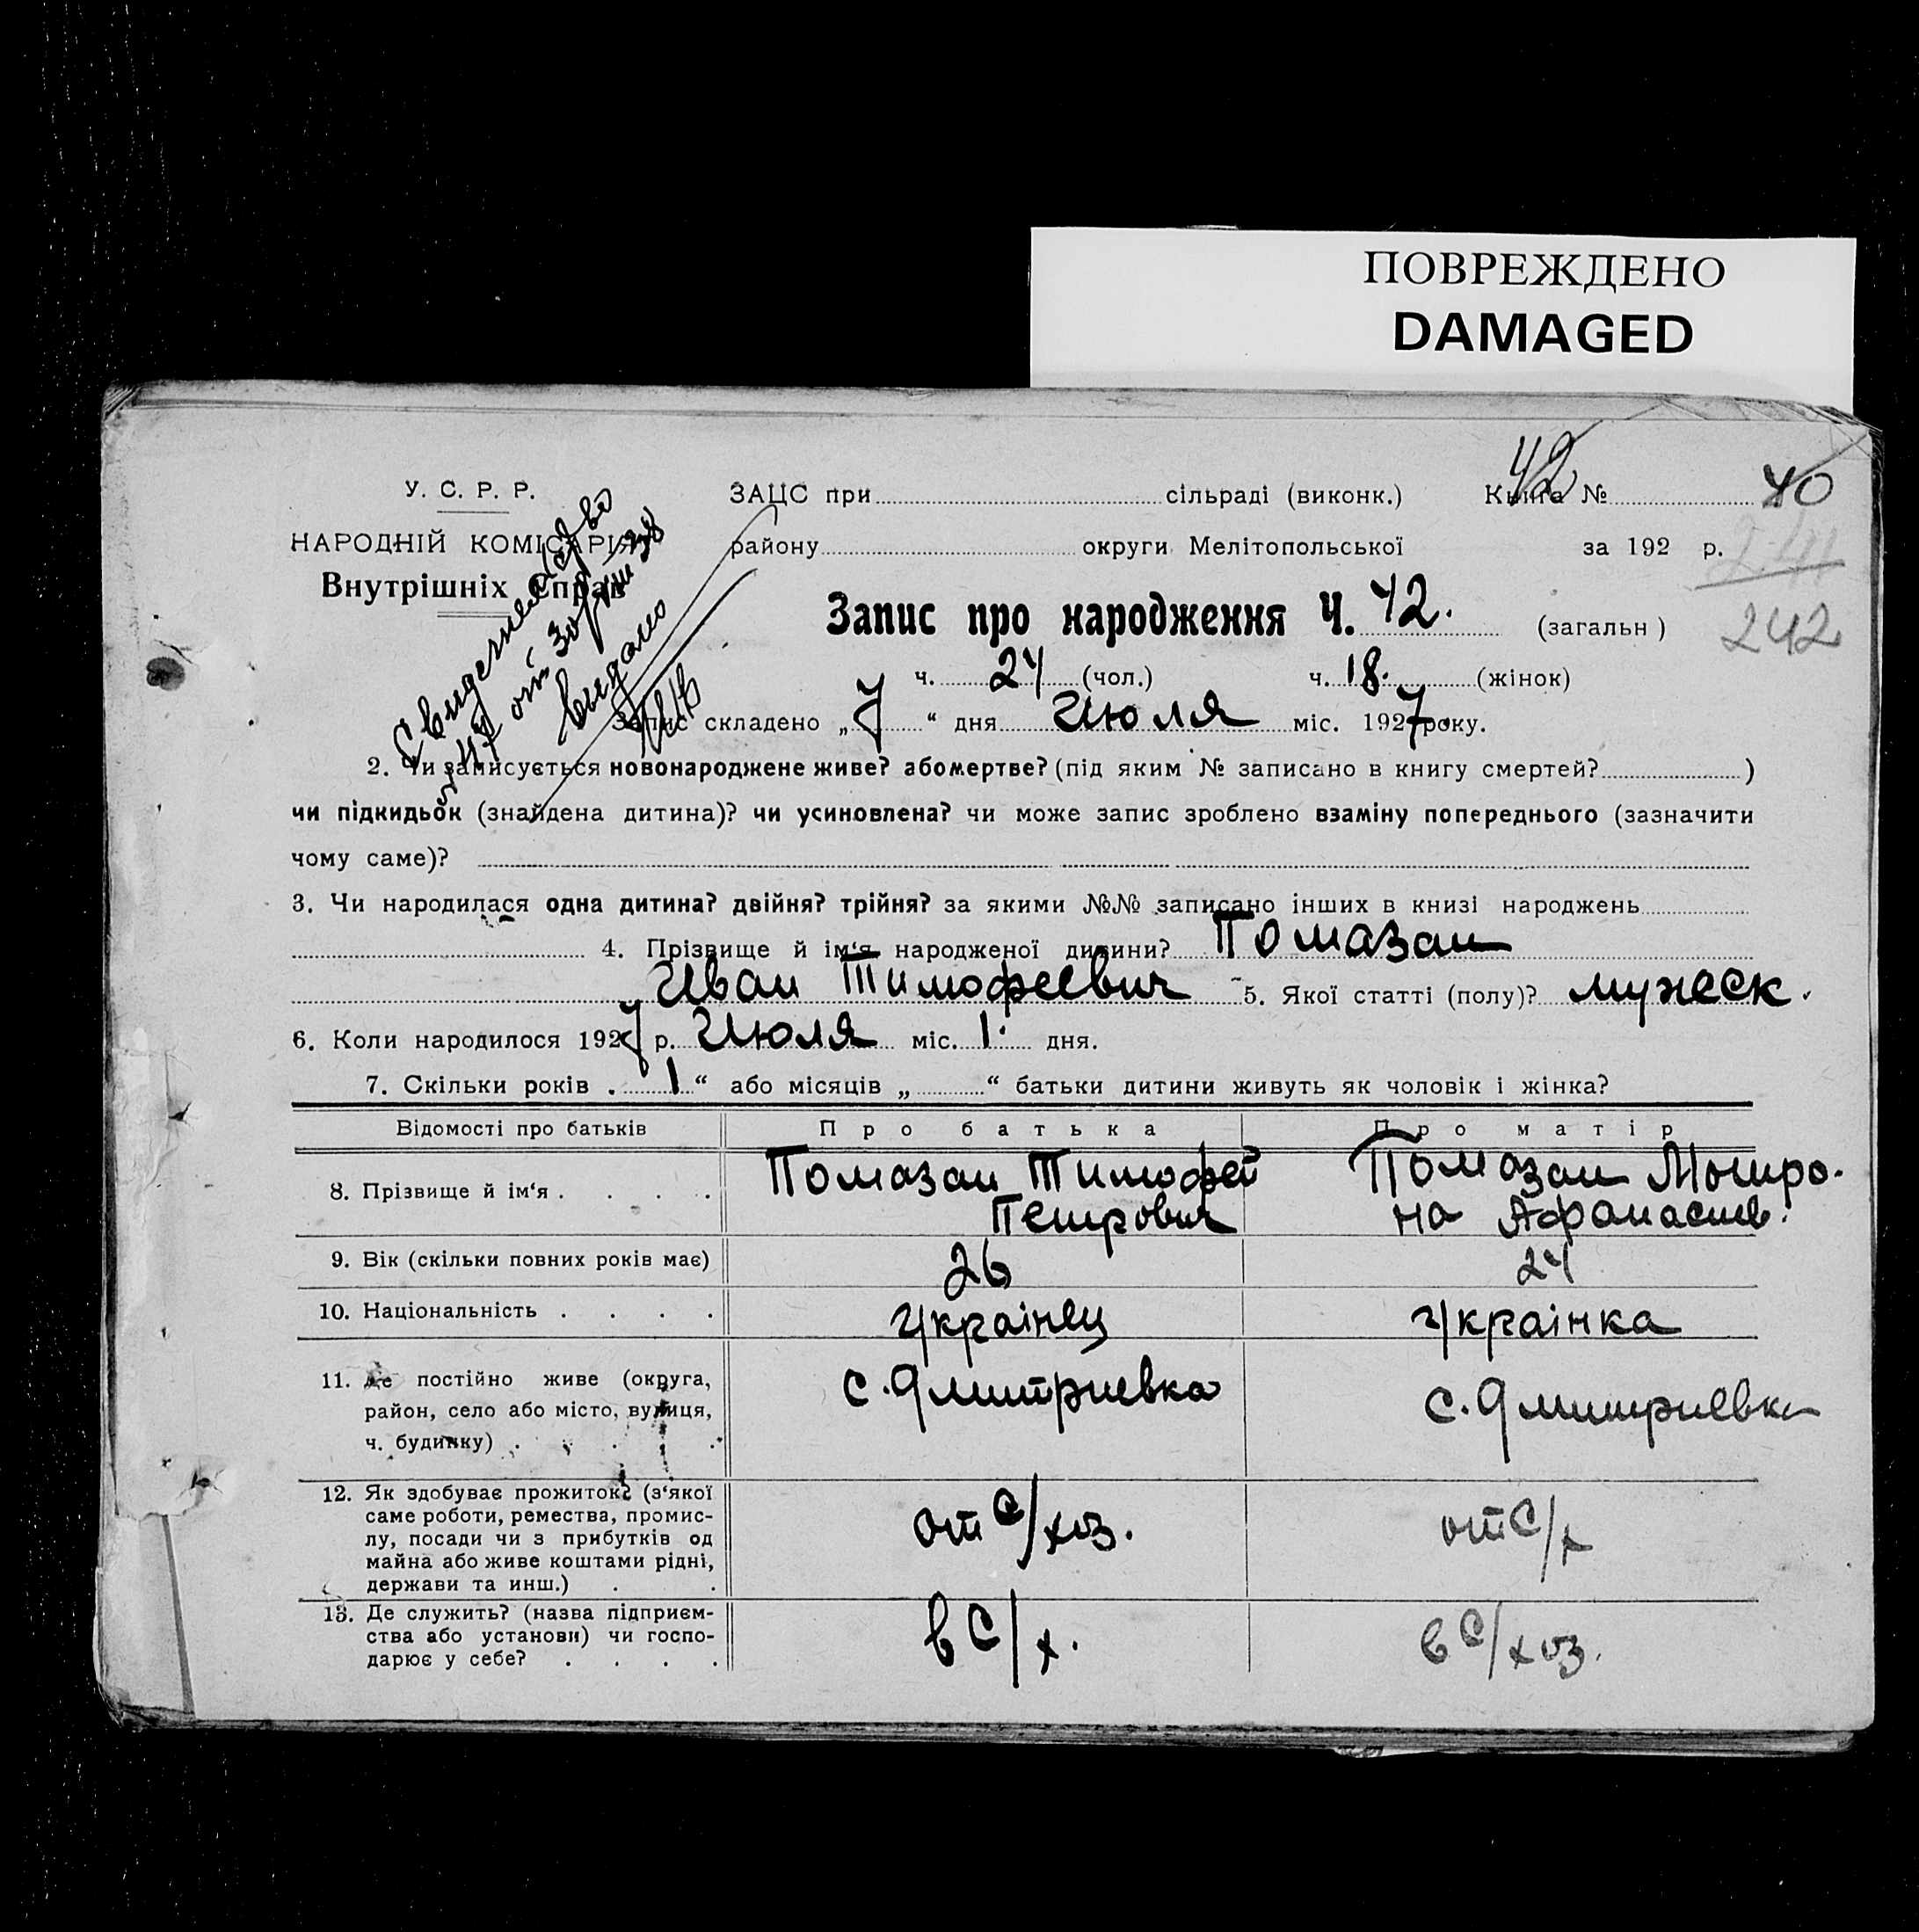 ПОВРЕЖДЕНО
DAMAGED
У. С. Р. Р.
ЗАЦС при сільраді (виконк.) Книга № 42 40
НАРОДНІЙ КОМІСАРІЯТ
району округи Мелітопольської за 192 р. 241
Внутрішніх Справ
Запис про народження Ч. 42. (загальн) 242
ч. 24 (чол.) ч. 18. (жінок)
Запис складено „7“ дня Июля міс. 1927 року.
Свидетельство
47 от
выдано
2. Чи записується новонароджене живе? або мертве? (під яким № записано в книгу смертей? )
чи підкидьок (знайдена дитина)? чи усиновлена? чи може запис зроблено взаміну попереднього (зазначити
чому саме)?
3. Чи народилася одна дитина? двійня? трійня? за якими №№ записано інших в книзі народжень
4. Прізвище й ім‘я народженої дитини? Помазан
Иван Тимофеевич 5. Якої статті (полу)? мужеск.
6. Коли народилося 1927 р. Июля міс. 1. дня.
7. Скільки років „1“ або місяців „ “ батьки дитини живуть як чоловік і жінка?
Відомості про батьків Про батька Про матір
8. Прізвище й ім‘я . . . . Помазан Тимофей Помазан Мотро-
Петрович на Афанасиев.
9. Вік (скільки повних років має) 26 24
10. Національність . . . . Українец Українка
11. Де постійно живе (округа, с. Дмитриевка с. Дмитриевка
район, село або місто, вулиця,
ч. будинку) . . . .
12. Як здобуває прожиток? (з‘якої
саме роботи, ремества, промис- от с/хоз. от с/х
лу, посади чи з прибутків од
майна або живе коштами рідні,
держави та инш.) . .
13. Де служить? (назва підприєм-
ства або установи) чи госпо- в с/х. в с/хоз.
дарює у себе? . . . .